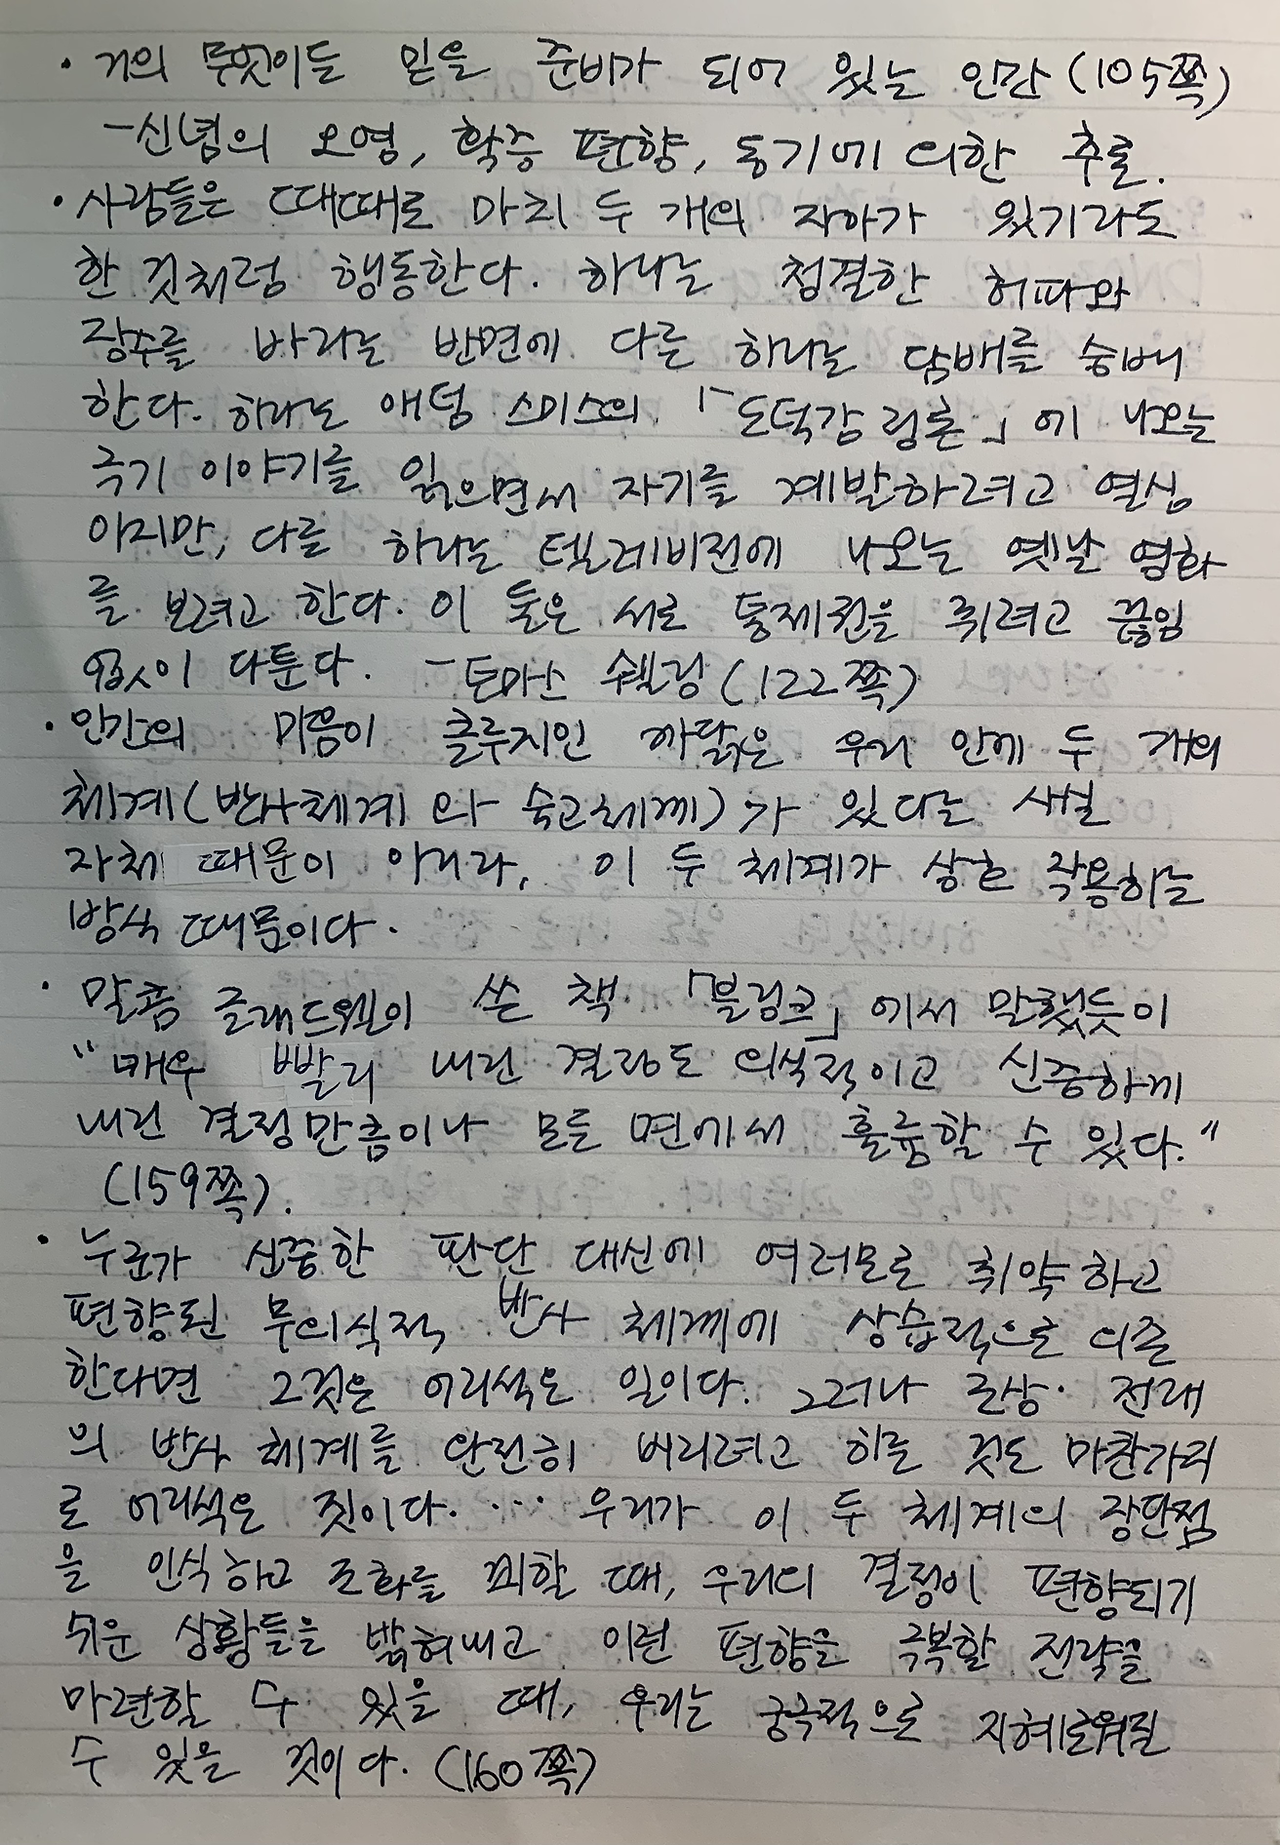 · 거의 무엇이든 믿을 준비가 되어 있는 인간(105쪽)
-신념의 오염, 확증 편향, 동기에 의한 추론.
· 사람들은 때때로 마치 두 개의 자아가 있기라도
한 것처럼 행동한다. 하나는 청결한 허파와
장수를 바라는 반면에 다른 하나는 담배를 숭배
한다. 하나는 애덤 스미스의 「도덕감정론」에 나오는
극기 이야기를 읽으면서 자기를 계발하려고 열심
이지만, 다른 하나는 텔레비전에 나오는 옛날 영화
를 보려고 한다. 이 둘은 서로 통제권을 쥐려고 끊임
없이 다툰다. -토마스 쉘링(122쪽)
· 인간의 마음이 클루지인 까닭은 우리 안에 두 개의
체계(반사체계와 숙고체계)가 있다는 사실
자체 때문이 아니라, 이 두 체계가 상호 작용하는
방식 때문이다.
· 말콤 글래드웰이 쓴 책 「블링크」에서 말했듯이
"매우 빨리 내린 결정도 의식적이고 신중하게
내린 결정만큼이나 모든 면에서 훌륭할 수 있다."
(159쪽).
· 누군가 신중한 판단 대신에 여러모로 취약하고
편향된 무의식적 반사 체계에 상습적으로 의존
한다면 그것은 어리석은 일이다. 그러나 조상 전래
의 반사 체계를 완전히 버리려고 하는 것도 마찬가지
로 어리석은 짓이다. … 우리가 이 두 체계의 장단점
을 인식하고 조화를 꾀할 때, 우리의 결정이 편향되기
쉬운 상황들을 밝혀내고 이런 편향을 극복할 전략을
마련할 수 있을 때, 우리는 궁극적으로 지혜로워질
수 있을 것이다. (160쪽)